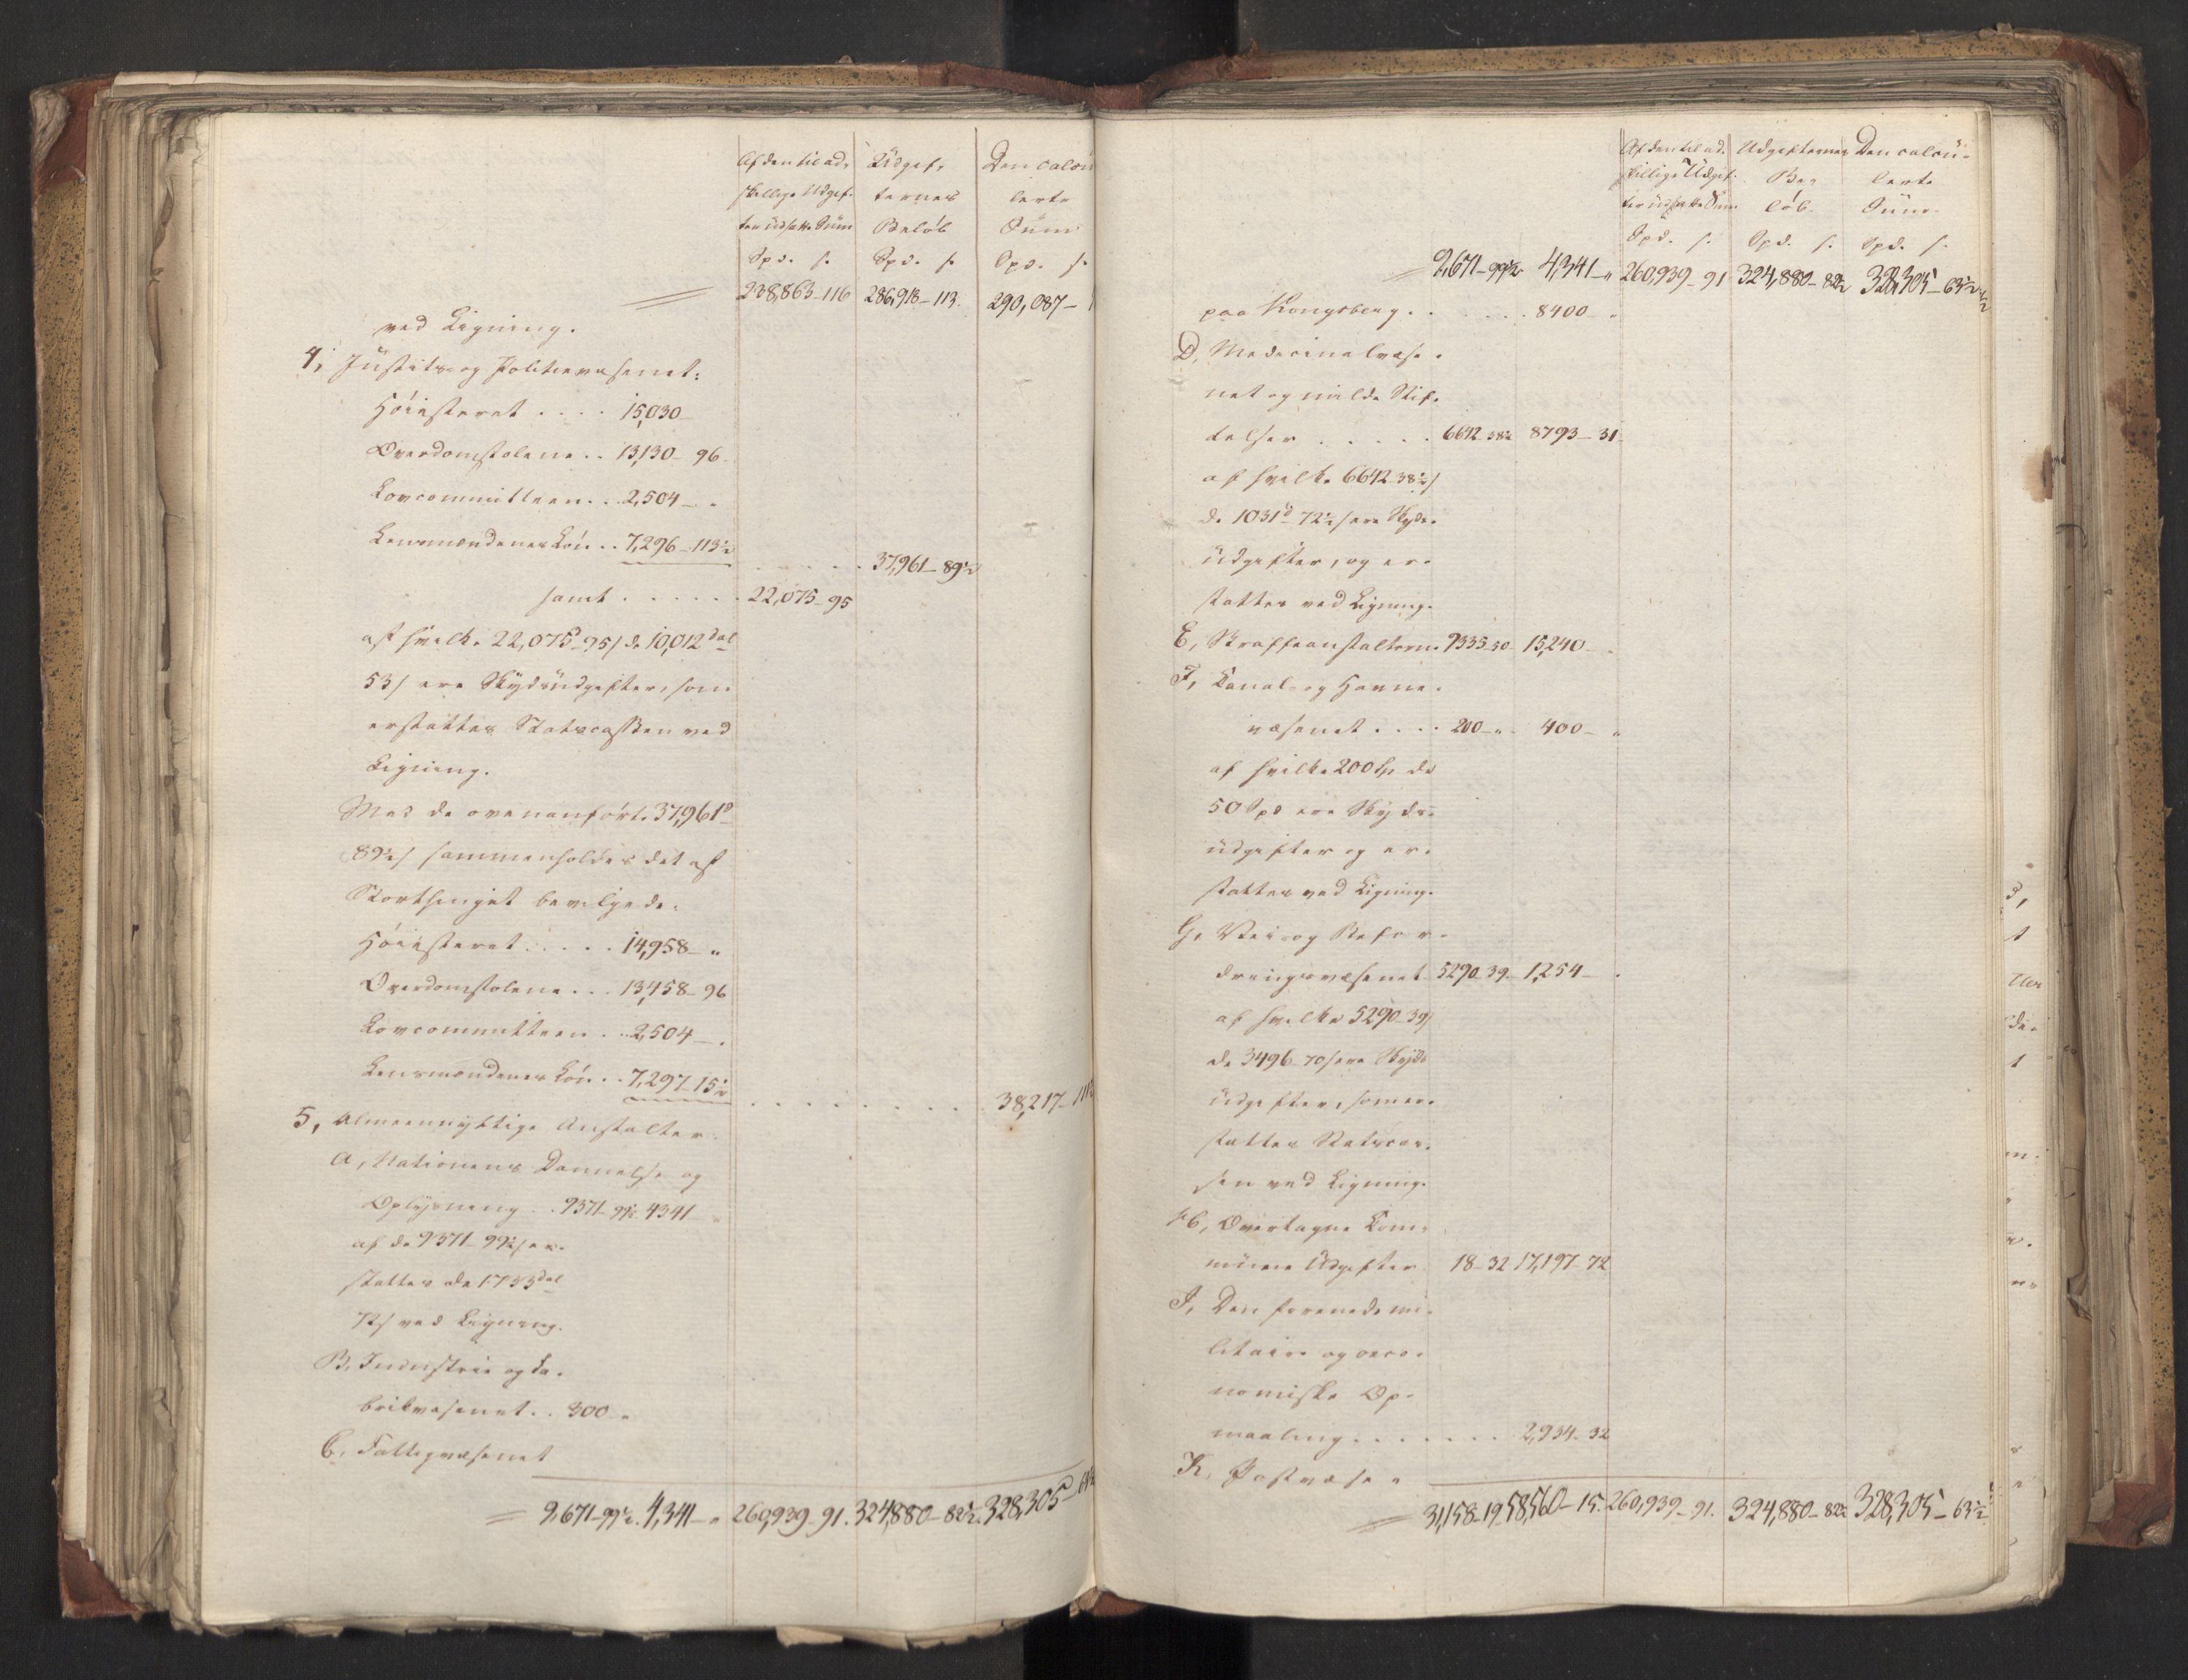 Af den til ad- Udgif- Den calcu
skillige Udgif- ternes lerte
ter udsatte Sum Beløb Sum
Spd. s. Spd. s. Spd. s.
238,863-116 286,918-113. 290,087-
ved Ligning.
4, Justits- og Politievæsenet:
Høiesteret .... 15,030-
Overdomstolene .. 13,130-96-
Lovcommitteen .. 2,504-"
Lensmændenes Løn .. 7,296-113½ ..... 37,961-89½
samt ...... 22,075-95
af hvilke 22,075-95 s de 10,012 dal
53 s ere Skydsudgifter, som
erstattes Statscassen ved
Ligning.
Med de ovenanførte 37,961 d
89½ s sammenholdes det af
Storthinget bevilgede:
Høiesteret ..... 14,958-"
Overdomstolene ... 13,458-96
Lovcommitteen .. 2,504-.
Lensmændenes Løn .. 7,297-15½ ......... 38,217-
5, Almeennyttige Anstalter:
A, Nationens Dannelse og
Oplysning .. 9371-99½ 4341
af de 9371-99½ s er-
stattes de 1733 dal
72 s ved Ligning.
B, Industrie og Fa-
brikvæsenet .. 300-"
C, Fattigvæsenet
9,671-99½. 4,341-" 260,939-91. 324,880-82½. 328,305-
Af den til ad- Udgifternes Den calcu-
skillige Udgif- Be- lerte
ter udsatte Sum løb. Sum.
Spd. s. Spd. s. Spd. s.
9,671-99½ 4,341-" 260,939-91 324,880-82½ 328,305-63½
paa Kongsberg ....... 8400-"
D, Medicinalvæse-
net og milde Stif-
telser ..... 6642-38½ 8793-31
af hvilke 6642-38½ s
de 1031 d 72½ s ere Skyds-
udgifter, og er-
stattes ved Ligning.
E, Straffeanstalterne 9335-50- 15,240-.
F, Canal- og Havne-
væsenet .... 200-". 400-"
af hvilke 200 Sp de
50 Spd ere Skyds-
udgifter og er-
stattes ved Ligning.
G, Vei- og Befor-
dringsvæsenet 5290-39- 1,254-.
af hvilke 5290-39 s
de 3496-70 s ere Skyds
udgifter, som er-
stattes Statscas-
sen ved Ligning.
H, Overtagne Com-
mune Udgifter 18-32 17,197-72
I, Den forenede mi-
litaire og oeco-
nomiske Op-
maaling ....... 2,934-32
K, Postvæse-
31,158-19 58,560-15. 260,939-91. 324,880-82½ 328,305-63½